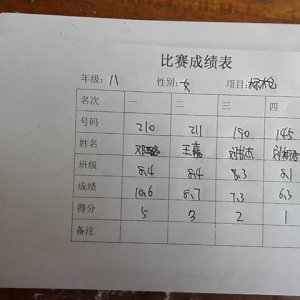 比赛成绩表
年级：八 性别：女 项目：标枪
名次 一 二 三 四
号码 210 211 190 145
姓名 王嘉
班级 8.4 8.4 8.3 8.1
成绩 10.6 8.7 7.3 6.3
得分 5 3 2 1
备注